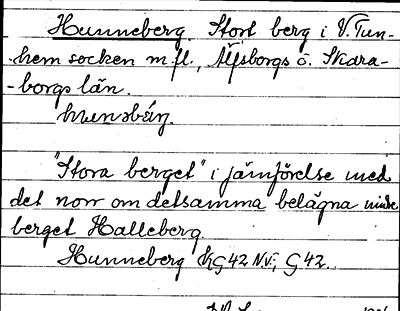 Hunneberg. Stort berg i V. Tun-
hem socken m.fl., Älfsborgs o. Skara-
-borgs län.
"Stora berget" i jämförelse med
det norr om detsamma belägna mindre
berget Halleberg
Hunneberg KG42 N.V.; G42.